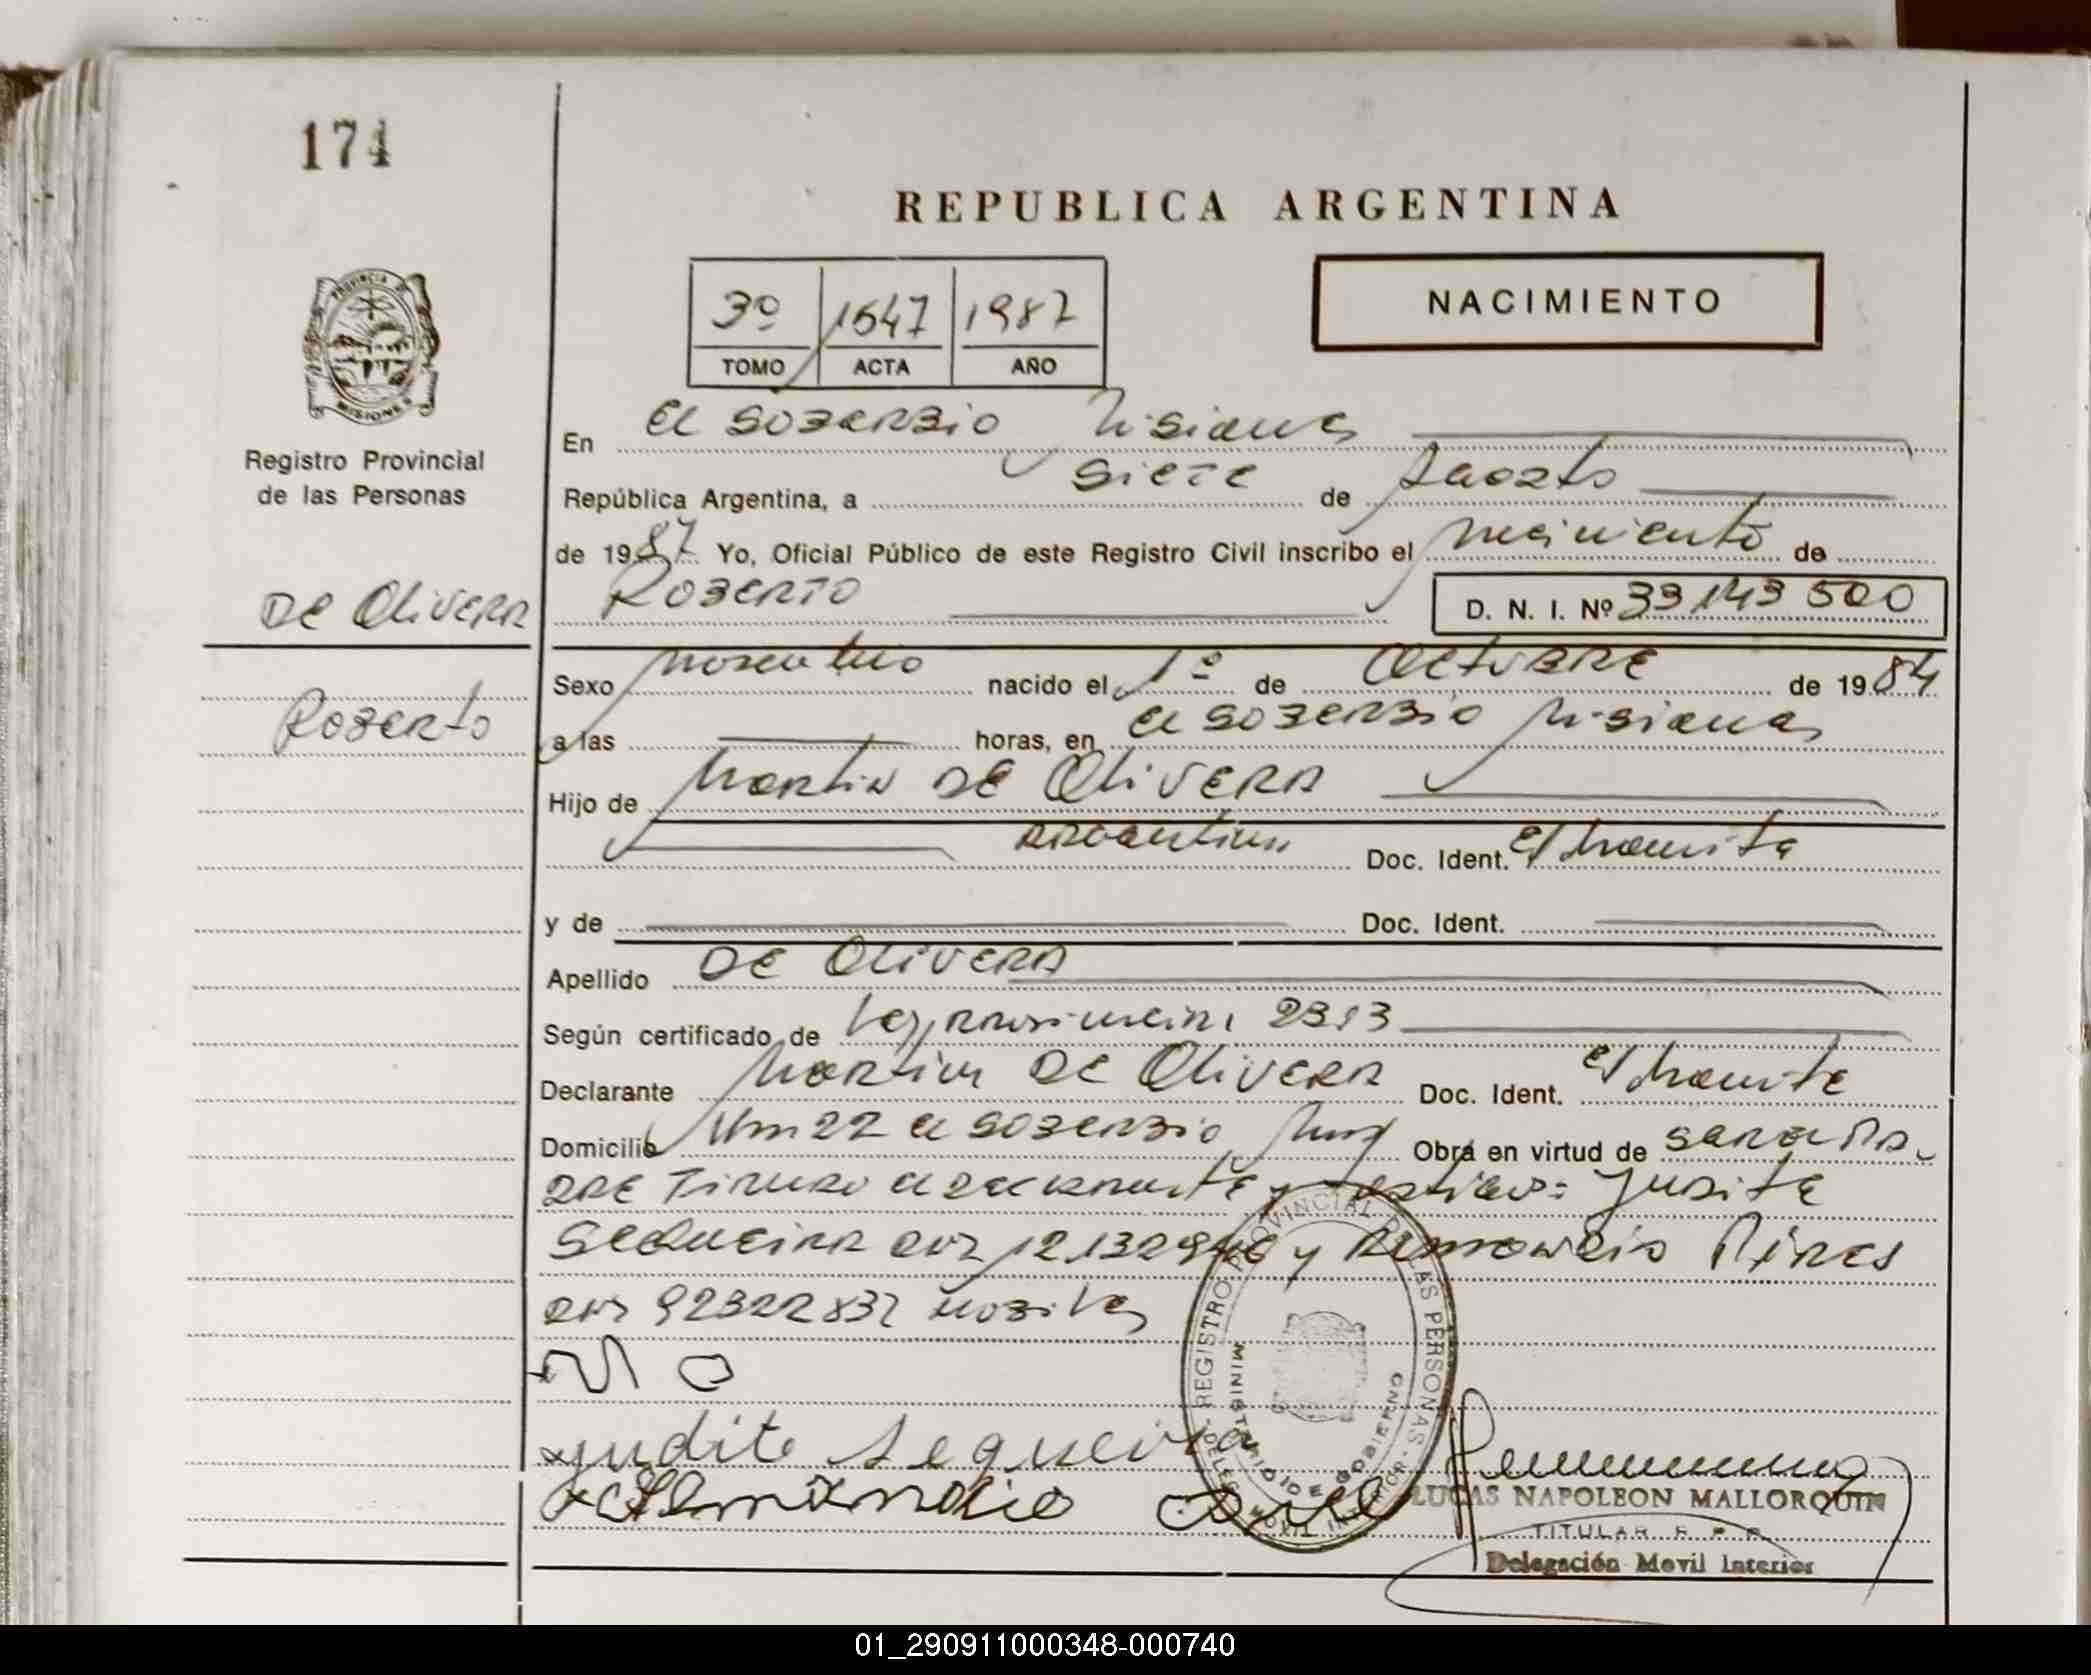 174
REPUBLICA ARGENTINA
NACIMIENTO
3º 1547 1987
TOMO ACTA AÑO
PROVINCIA D
MISIONES
Registro Provincial
de las Personas
De Olivera
Roberto
En El Soberbio Misiones
República Argentina, a Siete de Agosto
de 1987 Yo, Oficial Público de este Registro Civil inscribo el nacimiento de
Roberto D. N. I. Nº 33143500
Sexo masculino nacido el 1º de Octubre de 1984
a las horas, en El Soberbio Misiones
Hijo de Martin De Olivera
argentino Doc. Ident. E/tramite
y de Doc. Ident.
Apellido De Olivera
Según certificado de Ley provincial 2313
Declarante Martin De Olivera Doc. Ident. E/tramite
Domicilio Km 22 El Soberbio Obra en virtud de ser el pa-
dre Firman el declarante y testigos: Judite
Sequeira DNI 12132946 y Armandio Pires
DNI 92322832
judite sequeira
REGISTRO PROVINCIAL DE LAS PERSONAS
MINISTERIO DE GOBIERNO
MOVIL INTERIOR
LUCAS NAPOLEON MALLORQUIN
TITULAR R. P. P.
Delegación Movil Interior
01_290911000348-000740